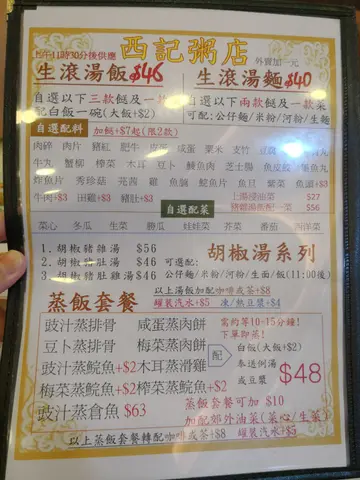 上午11時30分後供應
西記粥店
外賣加一元
生滾湯飯$46
生滾湯麵$40
自選以下三款餸及一款菜
配白飯一碗(大飯+$2)
自選以下兩款餸及一款菜
可配:公仔麵/米粉/河粉/生麵
自選配料 加餸+$7起(限2款)
肉碎 肉片 豬紅 肥牛 皮蛋 咸蛋 粟米 支竹
牛丸 蟹柳 榨菜 木耳 豆卜 鯪魚肉 芝士腸 魚皮餃
炸魚片 秀珍菇 芫茜 雞 魚腩 鯇魚片 魚旦 紫菜 魚頭+$3
牛肉+$3 田雞+$3 豬肚+$3
上湯浸油菜 $27
$56
自選配菜
菜心 冬瓜 生菜 勝瓜 娃娃菜 芥菜 番茄 西洋菜
胡椒湯系列
1. 胡椒豬雜湯 $56
2. 胡椒豬肚湯 $46
3. 胡椒豬肚雞湯 $46
可選配:
公仔麵/米粉/河粉/生面/飯(11:00後)
以上湯飯加配咖啡或茶+$8
罐裝汽水+$5 凍/熱豆漿+$4
蒸飯套餐
豉汁蒸排骨 咸蛋蒸肉餅
豆卜蒸排骨 梅菜蒸肉餅
豉汁蒸鯇魚+$2 木耳蒸滑雞
梅菜蒸鯇魚+$2 榨菜蒸鯇魚+$2
豉汁蒸倉魚 $63
需約等10-15分鐘!
下單即蒸!
配
白飯(大飯+$2)
奉送例湯
或豆漿
$48
蒸飯套餐可加 $10
加配郊外油菜(菜心/生菜)
以上蒸飯套餐轉配咖啡或茶+$8 罐裝汽水+$5